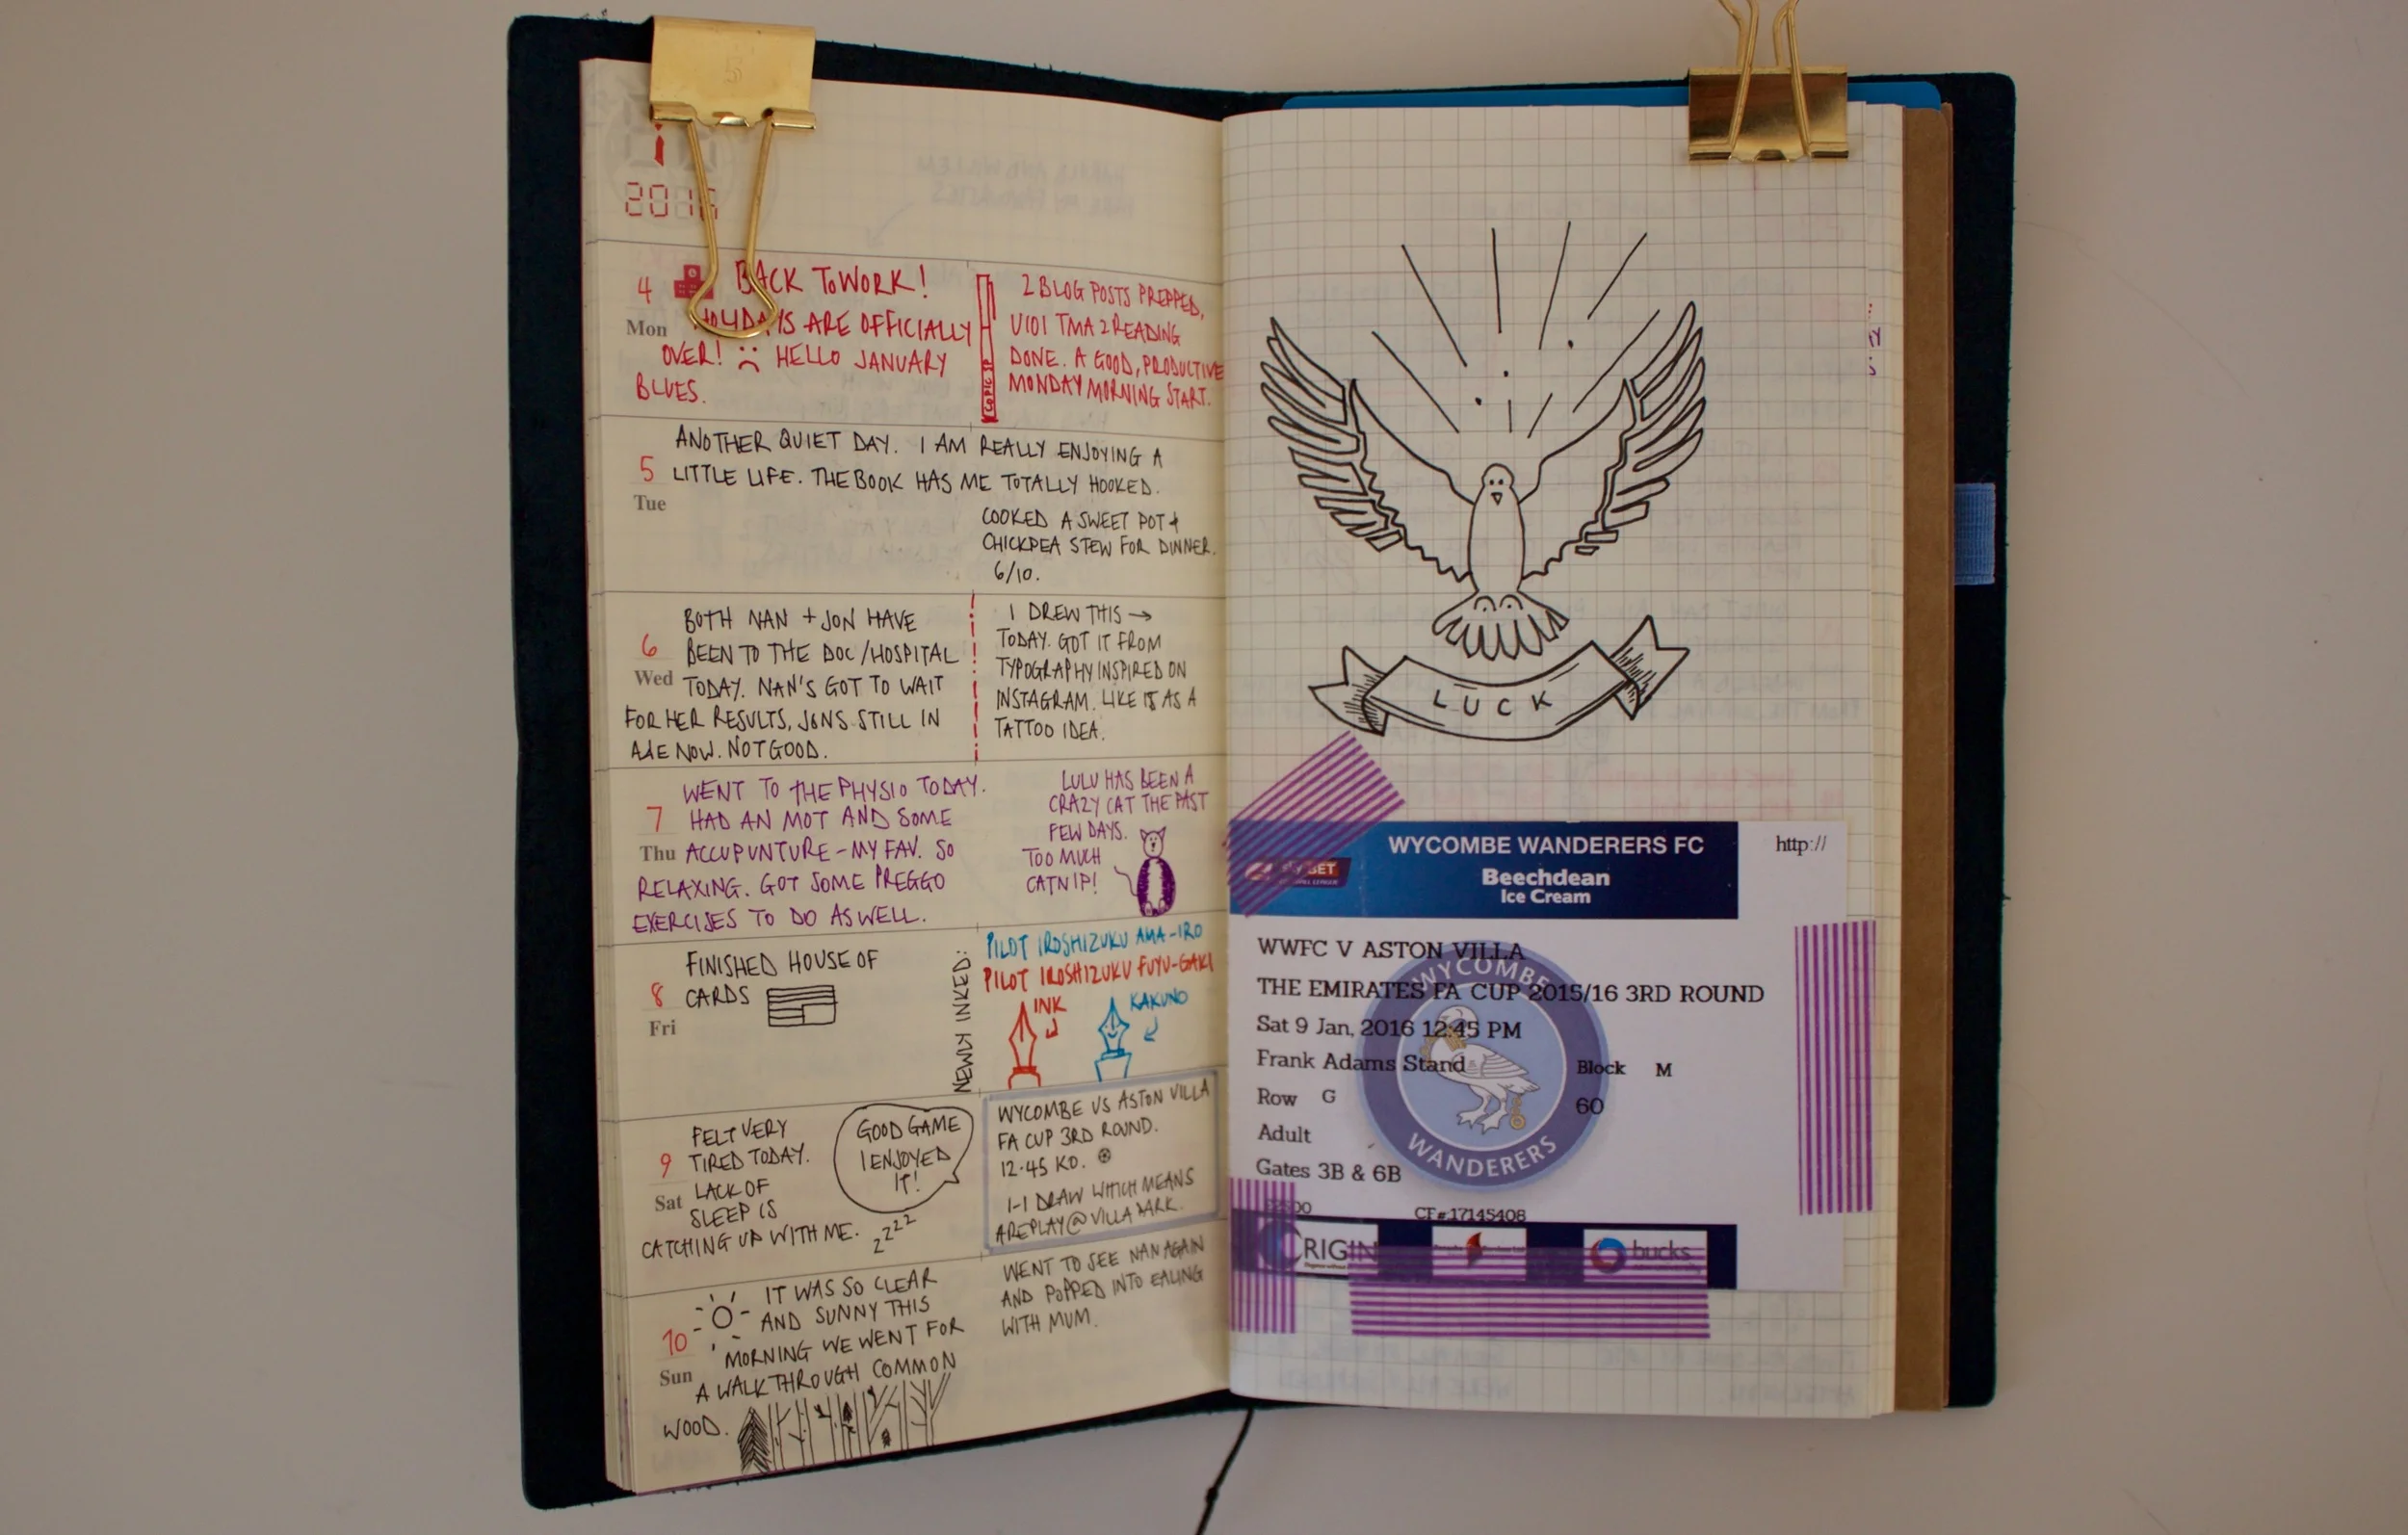 2016
4
Mon
BACK TO WORK!
HOLIDAYS ARE OFFICIALLY
OVER! HELLO JANUARY
BLUES.
COPIC SP
2 BLOG POSTS PREPPED,
U101 TMA 2 READING
DONE. A GOOD, PRODUCTIVE
MONDAY MORNING START.
5
Tue
ANOTHER QUIET DAY. I AM REALLY ENJOYING A
LITTLE LIFE. THE BOOK HAS ME TOTALLY HOOKED.
COOKED A SWEET POT +
CHICKPEA STEW FOR DINNER.
6/10.
6
Wed
BOTH NAN + JON HAVE
BEEN TO THE DOC/HOSPITAL
TODAY. NAN'S GOT TO WAIT
FOR HER RESULTS, JONS STILL IN
A&E NOW. NOT GOOD.
I DREW THIS →
TODAY. GOT IT FROM
TYPOGRAPHY INSPIRED ON
INSTAGRAM. LIKE IS AS A
TATTOO IDEA.
7
Thu
WENT TO THE PHYSIO TODAY.
HAD AN MOT AND SOME
ACCUPUNTURE - MY FAV. SO
RELAXING. GOT SOME PREGGO
EXERCISES TO DO AS WELL.
LULU HAS BEEN A
CRAZY CAT THE PAST
FEW DAYS.
TOO MUCH
CATNIP!
8
Fri
FINISHED HOUSE OF
CARDS
NEWLY INKED:
PILOT IROSHIZUKU AMA-IRO
PILOT IROSHIZUKU FUYU-GAKI
INK
KAKUNO
9
Sat
FELT VERY
TIRED TODAY.
LACK OF
SLEEP IS
CATCHING UP WITH ME.
ZZZZ
GOOD GAME
I ENJOYED
IT!
WYCOMBE VS ASTON VILLA
FA CUP 3RD ROUND.
12.45 KO.
1-1 DRAW WHICH MEANS
A REPLAY @ VILLA PARK.
10
Sun
IT WAS SO CLEAR
AND SUNNY THIS
MORNING WE WENT FOR
A WALK THROUGH COMMON
WOOD.
WENT TO SEE NAN AGAIN
AND POPPED INTO EALING
WITH MUM.
LUCK
WYCOMBE WANDERERS FC
Beechdean
Ice Cream
http://
SKY BET
WWFC V ASTON VILLA
THE EMIRATES FA CUP 2015/16 3RD ROUND
Sat 9 Jan, 2016 12:45 PM
Frank Adams Stand
Block M
Row G
60
Adult
Gates 3B & 6B
CF#:17145408
WYCOMBE
WANDERERS
ORIGIN
bucks